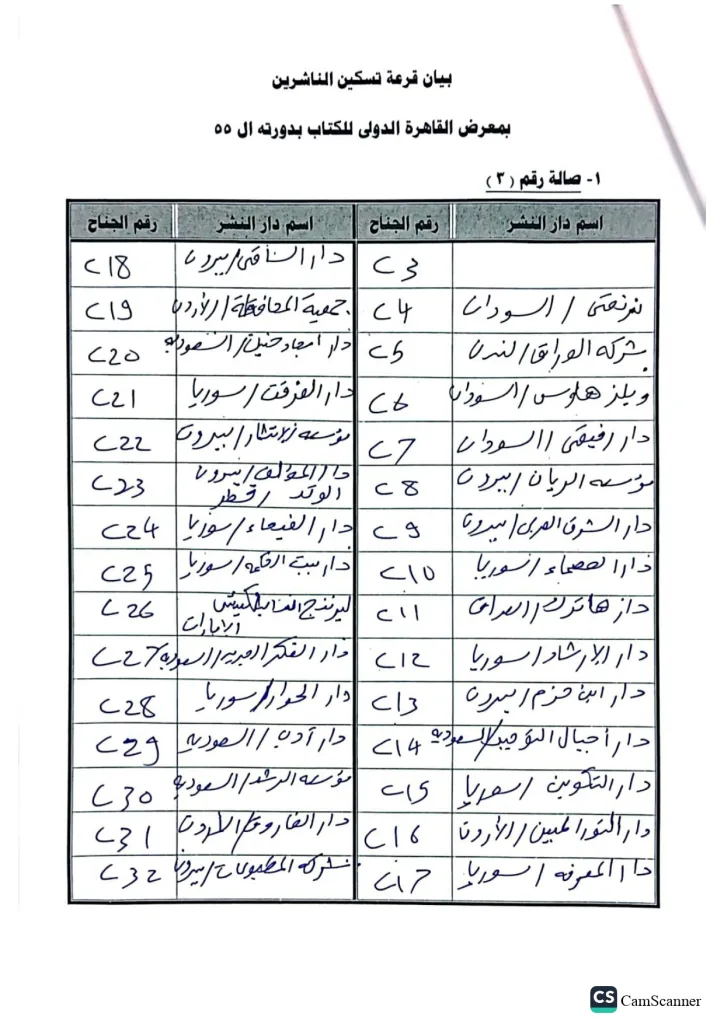 بيان قرعة تسكين الناشرين
بمعرض القاهرة الدولى للكتاب بدورته ال ٥٥
١- صالة رقم (٣)
اسم دار النشر رقم الجناح اسم دار النشر رقم الجناح
C3 دار الساقى/بيروت C18
/ السودان C4 جمعية المحافظة/الأردن C19
شركه الوراق/لندن C5 دار امجاد حنين/السعوديه C20
ويلز هاوس/السودان C6 دار الفرقد/سوريا C21
دار رفيقى/السودان C7 مؤسسه الانتشار/بيروت C22
مؤسسه الريان/بيروت C8 دار المؤلف/بيروت C23
الوتد/قطر
دار الشرق العربى/بيروت C9 دار الفيحاء/سوريا C24
دار العصماء/سوريا C10 دار بيت الحكمه/سوريا C25
دار /العراق C11 C26
الامارات
دار الارشاد/سوريا C12 دار الفكر العربيه/السعوديه C27
دار ابن حزم/بيروت C13 دار الحوار/سوريا C28
دار أجيال التوحيد/السعوديه C14 دار أدب/السعوديه C29
دار التكوين/سوريا C15 مؤسسه الرشد/السعوديه C30
دار النور المبين/الأردن C16 دار الفاروق/الأردن C31
دار المعرفه/سوريا C17 شركه المطبوعات/بيروت C32
CS CamScanner